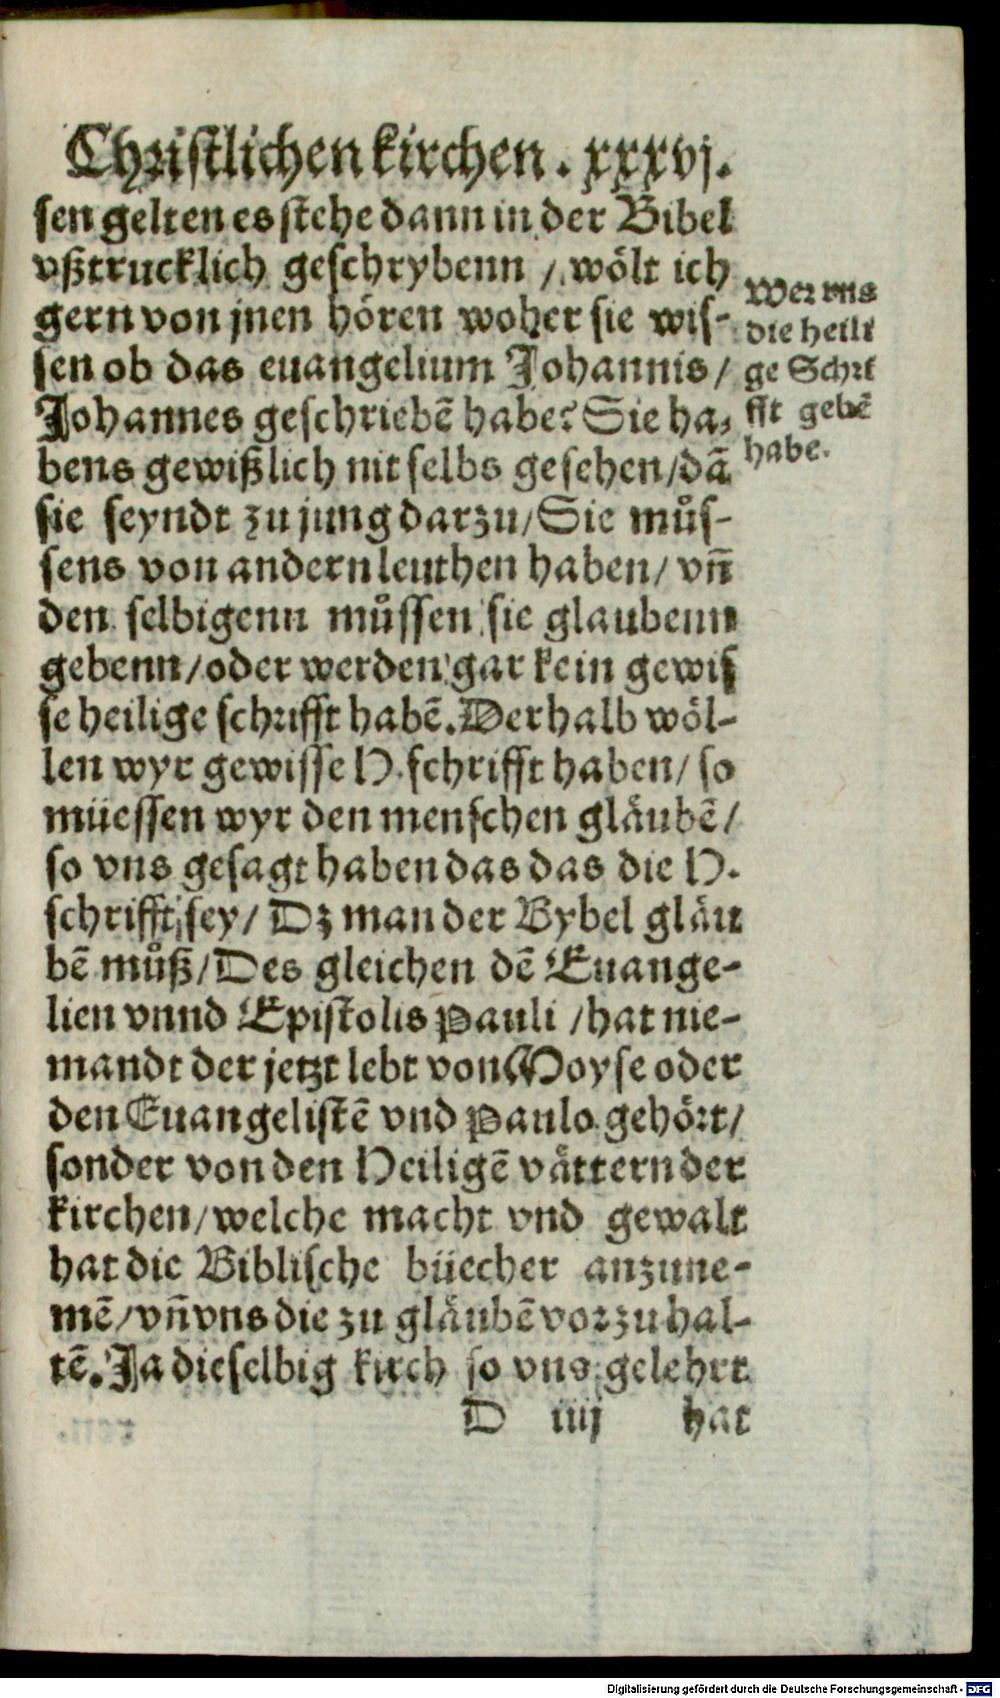 Christlichen kirchen. xxxvj.
sen gelten es stehe dann in der Bibel
vßtrucklich geschrybenn / wölt ich
gern von jnen hören woher sie wis-
sen ob das euangelium Johannis /
Johannes geschriebē habe? Sie ha-
bens gewißlich nit selbs gesehen / dā
sie seyndt zu jung darzu / Sie můs-
sens von andern leuthen haben / vñ
den selbigenn můssen sie glaubenn
gebenn / oder werden gar kein gewis
se heilige schrifft habē. Derhalb wöl-
len wyr gewisse H. schrifft haben / so
müessen wyr den menschen gläubē /
so vns gesagt haben das das die H.
schrifft sey / Dz man der Bybel gläu
bē můß / Des gleichen dē Euange-
lien vnnd Epistolis Pauli / hat nie-
mandt der jetzt lebt von Moyse oder
den Euangelistē vnd Paulo gehört /
sonder von den Heiligē vättern der
kirchen / welche macht vnd gewalt
hat die Biblische büecher anzune-
mē / vñ vns die zu gläubē vorzuhal-
tē. Ja dieselbig kirch so vns gelehrt
D iiij hat
Wer vns
die heili
ge Schri
fft gebē
habe.
Digitalisierung gefördert durch die Deutsche Forschungsgemeinschaft - DFG